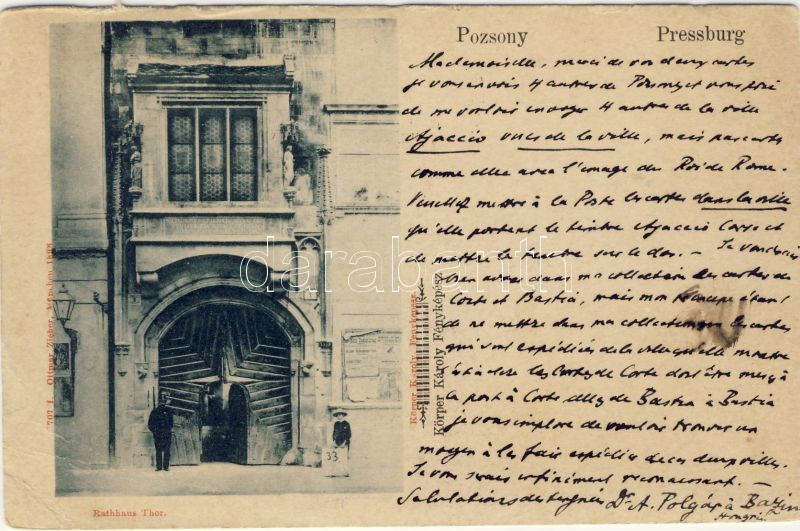 Pozsony Pressburg
Mademoiselle, merci de vos deux cartes
je vous envois 4 autres de Pozsony et vous prie
de me vouloir envoyer 4 autres de la ville
Ajaccio vues de la ville, mais pas cartes
comme elle avec l'image du Roi de Rome.
Veuillez mettre à la Poste les cartes dans la ville
qu'elle portent le timbre Ajaccio Corse et
de mettre le timbre sur le dos. – Je voudrais
bien avoir dans ma collection des cartes de
Corte et Bastia, mais mon principe étant
de ne mettre dans ma collection que les cartes
qui sont expédiés de la ville qu'elle montre
à dire les Cartes de Corte doit être
la post à Corte de Bastia à Bastia
je vous implore de vouloir trouver un
moyen à les faire expédier de ces deux villes.
Je vous serais infiniment reconnaissant. –
Salutations Dr. A. Polgár à Bazin
Hongrie
707 f. Ottmar Zieher, München 1898
Körper Károly Fényképész
Körper Károly Fényképész
33
Rathhaus Thor.
darabanth